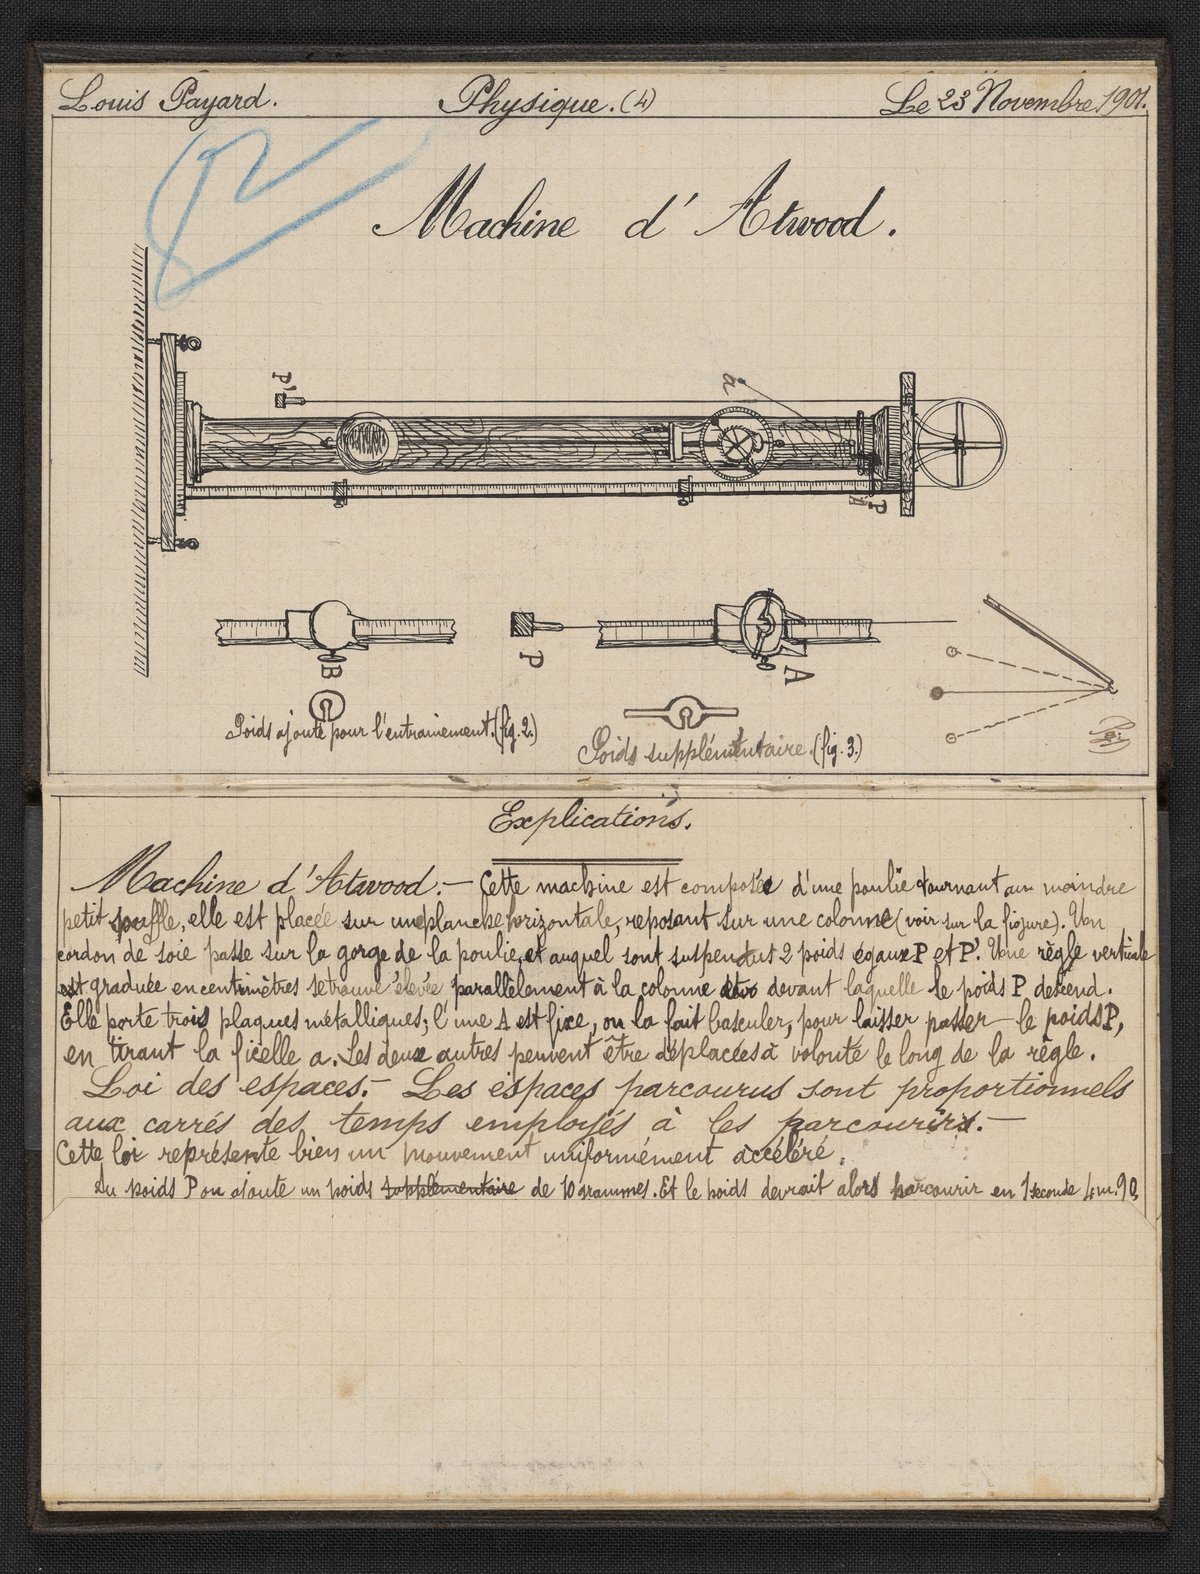 Louis Payard. Physique. (4) Le 23 Novembre 1901.
Machine d'Atwood.
P'
a
P
B
P
A
Poids ajouté pour l'entrainement. (fig. 2.)
Poids supplémentaire. (fig. 3.)
Explications.
Machine d'Atwood. — Cette machine est composée d'une poulie tournant au moindre
petit souffle, elle est placée sur une planche horizontale, reposant sur une colonne (voir sur la figure). Un
cordon de soie passe sur la gorge de la poulie, et auquel sont suspendus 2 poids égaux P et P'. Une règle verticale
est graduée en centimètres se trouve élevée parallèlement à la colonne devant laquelle le poids P descend.
Elle porte trois plaques métalliques; l'une A est fixe, on la fait basculer, pour laisser passer le poids P,
en tirant la ficelle a. Les deux autres peuvent être déplacées à volonté le long de la règle.
Loi des espaces. — Les espaces parcourus sont proportionnels
aux carrés des temps employés à les parcourir. —
Cette loi représente bien un mouvement uniformément accéléré.
Au poids P on ajoute un poids supplémentaire de 10 grammes. Et le poids devrait alors parcourir en 1 seconde 4m.90.